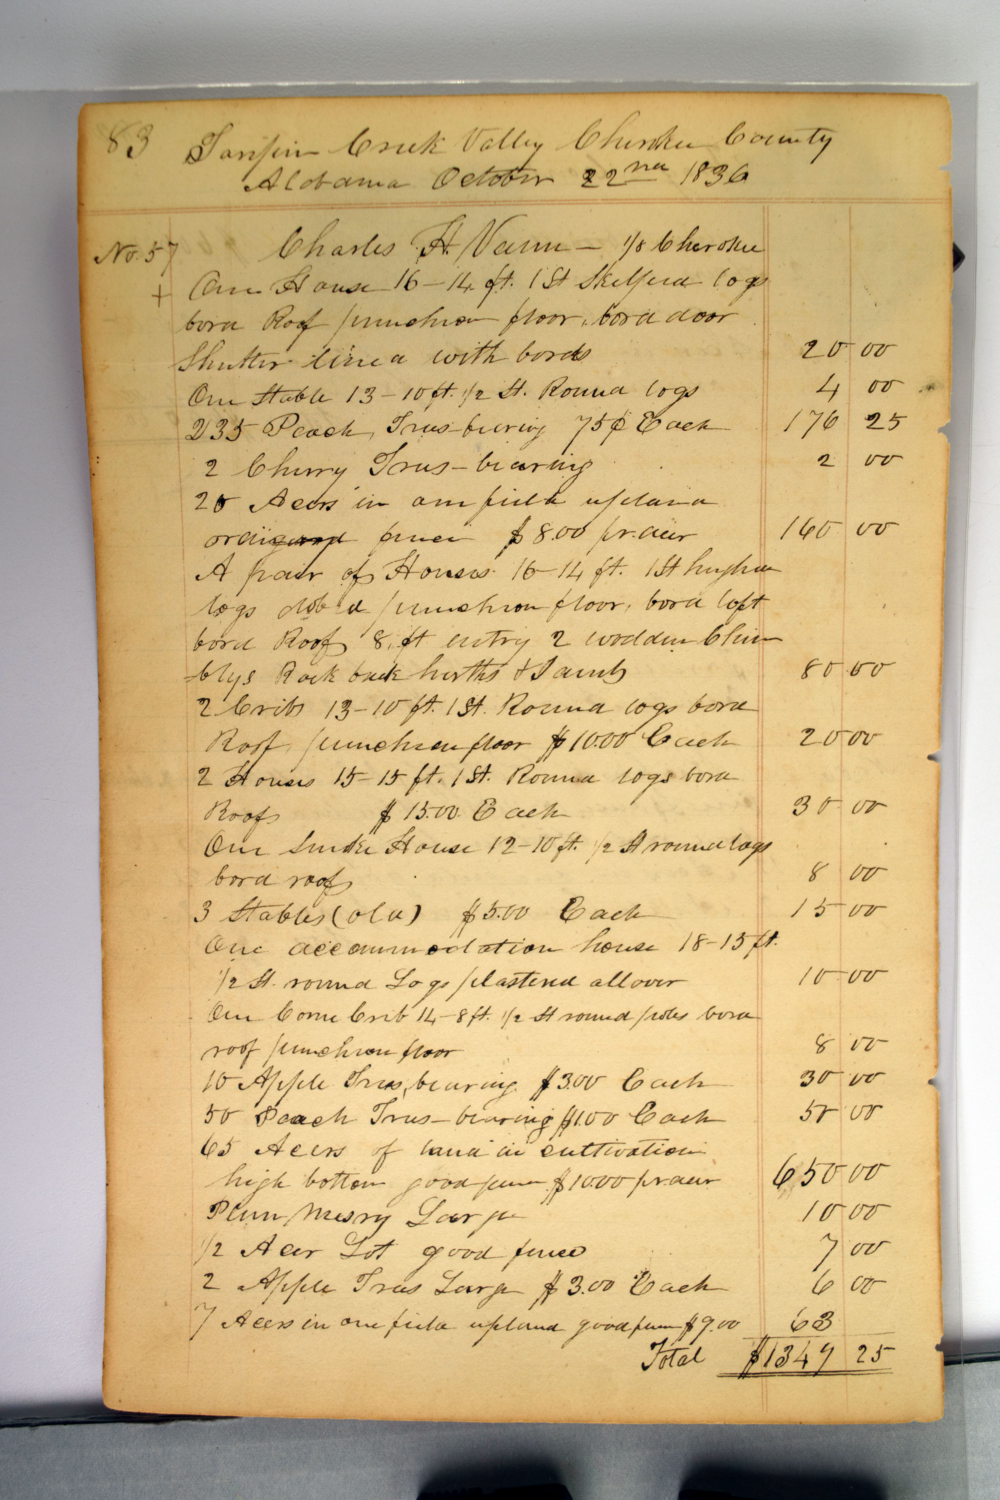 83 Taripin Creek Valley Cherokee County
Alobama October 22nd 1836
No. 57 Charles H. Vann — 1/8 Cherokee
+ One House 16–14 ft. 1 St Skelped logs
bord Roof puncheon floor, bord door
Shutter lined with bords 20 00
One Stable 13–10 ft. 1/2 St. Round logs 4 00
235 Peach Trees–bearing 75¢ Each 176 25
2 Cherry Trees–bearing 2 00
20 Acers in one field upland
fence $8.00 pr. acer 160 00
A pair of Houses 16–14 ft. 1 St hughn
logs dob'd puncheon floor, bord loft
bord Roof 8 ft entry 2 wodden Chim
blys Rock back herths & Jambs 80 00
2 Cribs 13–10 ft. 1 St. Round logs bord
Roof, puncheon floor $10.00 Each 20 00
2 Houses 15–15 ft. 1 St. Round logs bord
Roofs $15.00 Each 30 00
One Smoke House 12–10 ft. 1/2 St round logs
bord roof 8 00
3 Stables (old) $5.00 Each 15 00
One accommodation house 18–15 ft.
1/2 St. round Logs plasterd all over 10 00
One Corne Crib 14–8 ft. 1/2 St round poles bord
roof puncheon floor 8 00
10 Apple Trees, bearing $3.00 Each 30 00
50 Peach Trees–bearing $1.00 Each 50 00
65 Acers of land in cultivation
high bottom good fence $10.00 pr acer 650 00
Plum Large 10 00
1/2 Acer Lot good fence 7 00
2 Apple Trees Large $3.00 Each 6 00
7 Acers in one field upland good fence $9.00 63
Total $1349 25